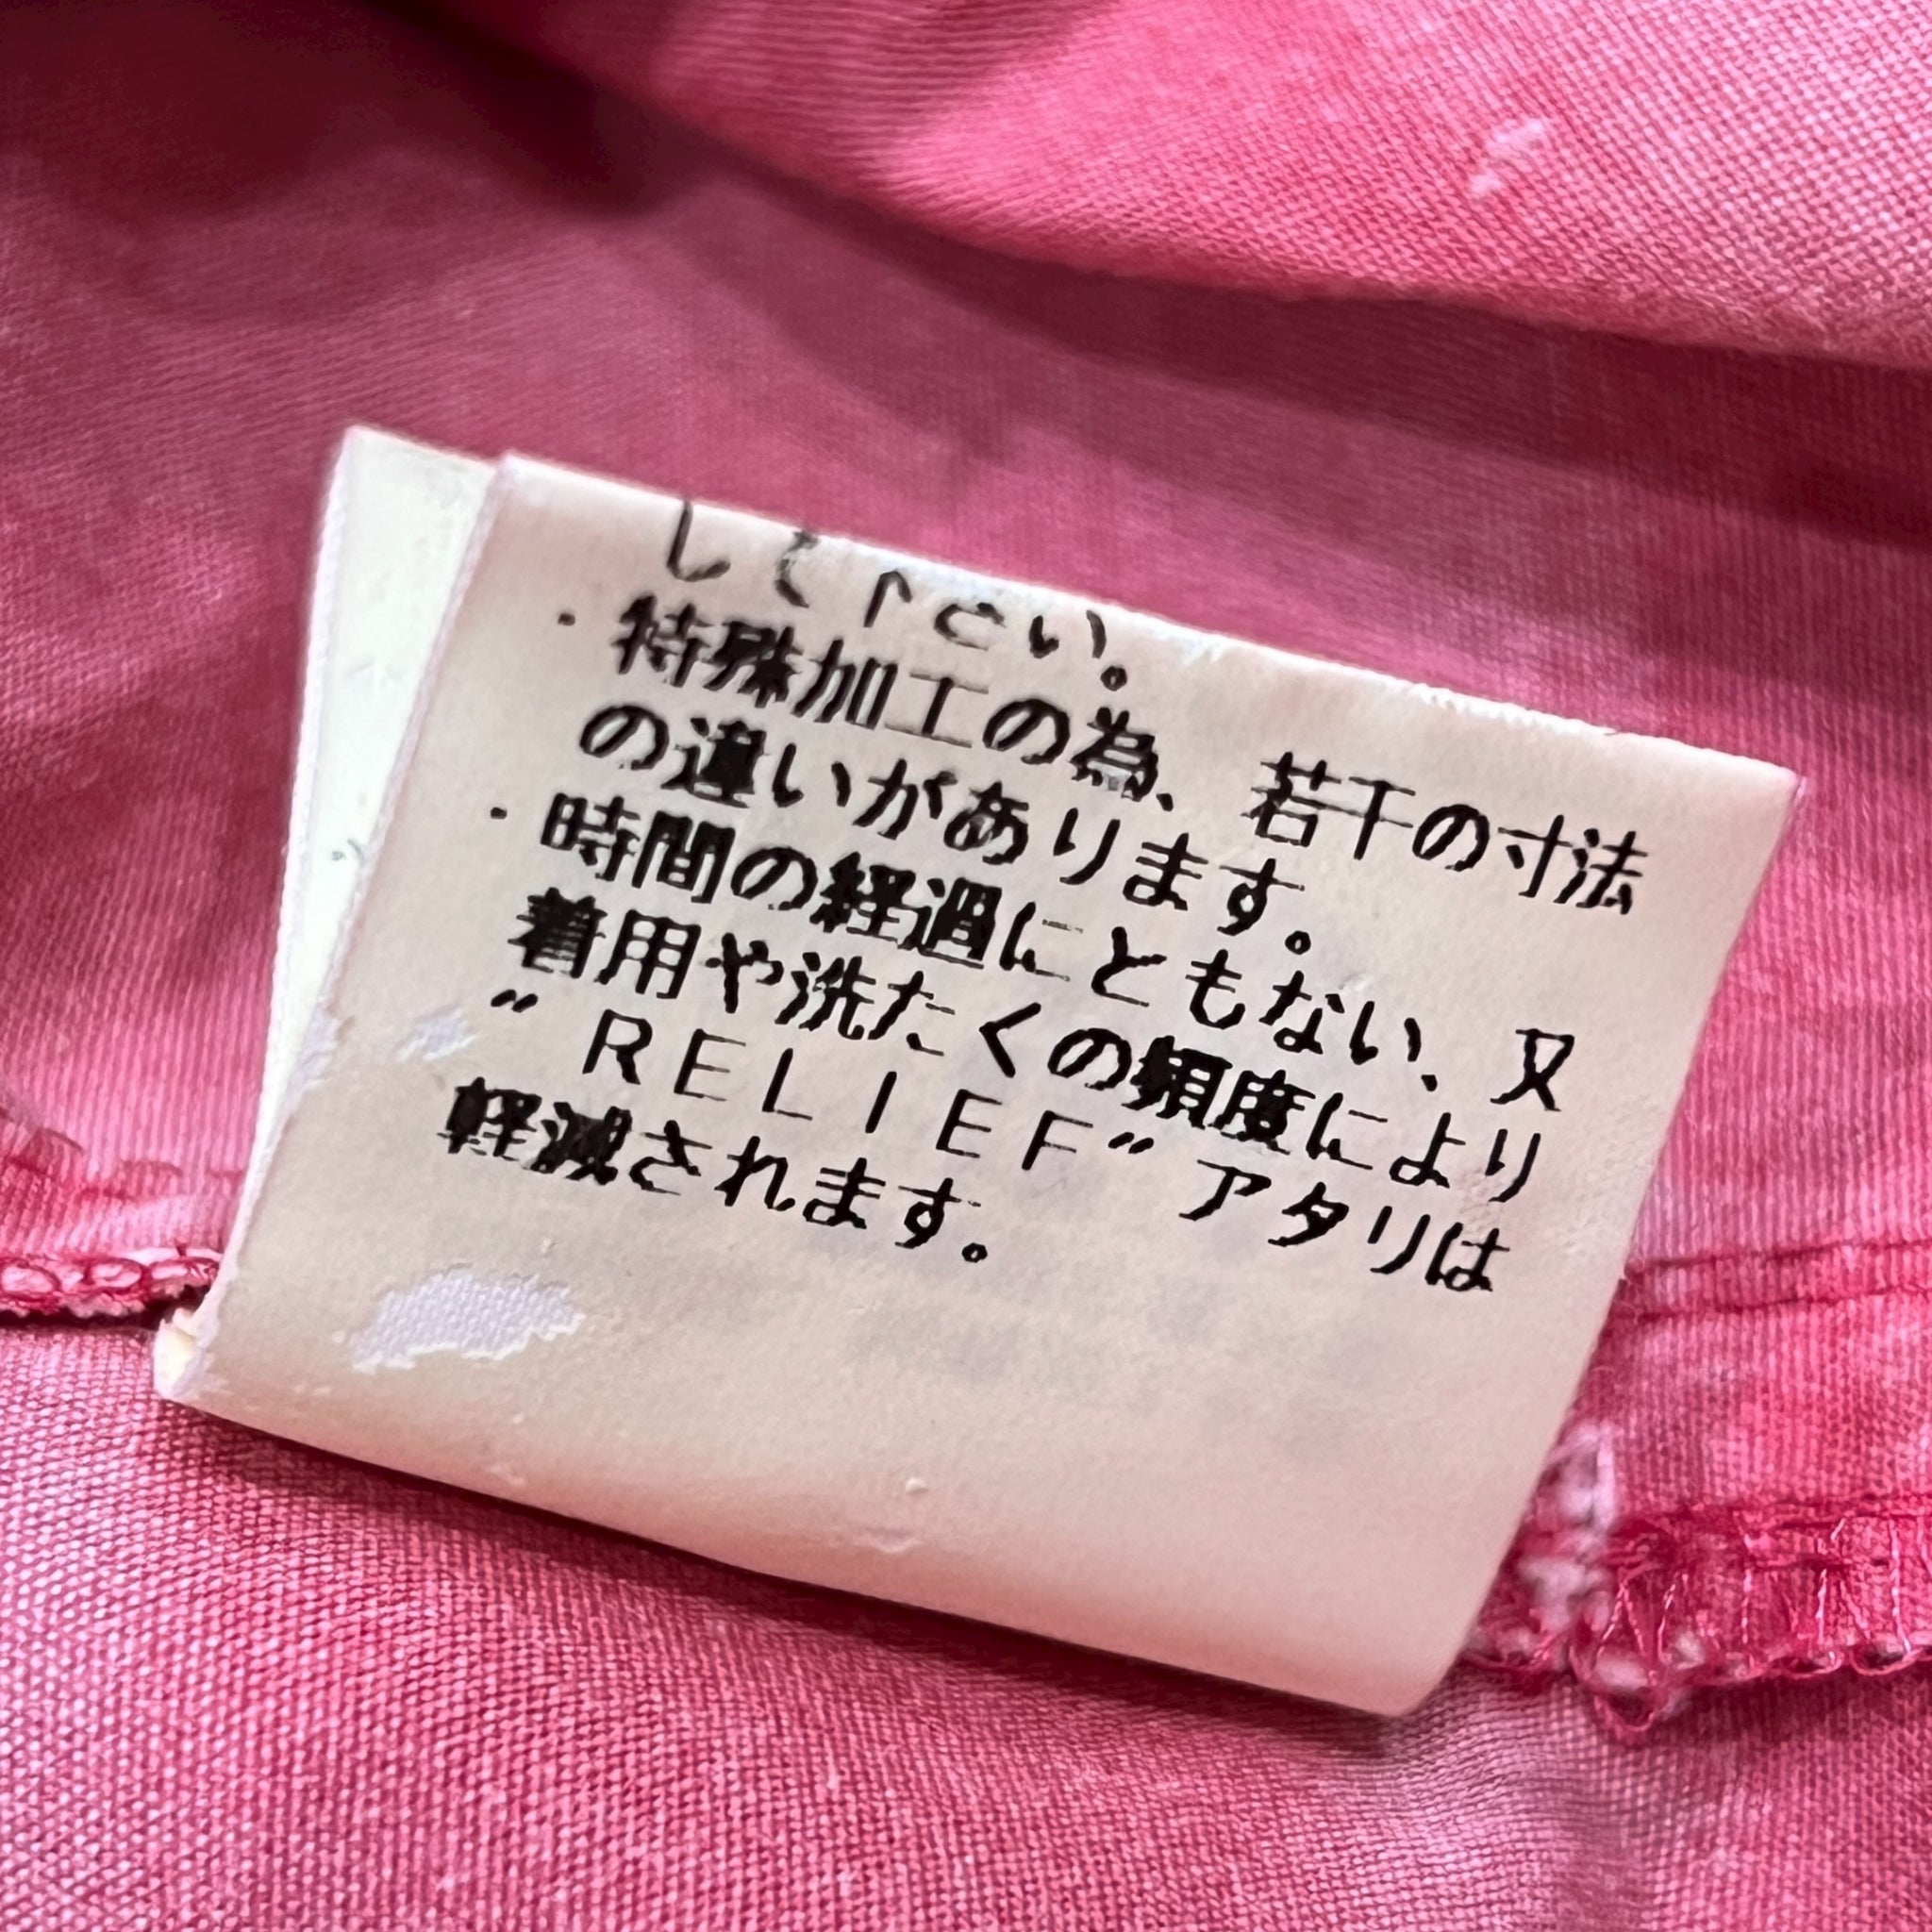 して下さい。
・特殊加工の為、若干の寸法
の違いがあります。
・時間の経過にともない、又
着用や洗たくの頻度により
〃ＲＥＬＩＥＦ〃アタリは
軽減されます。